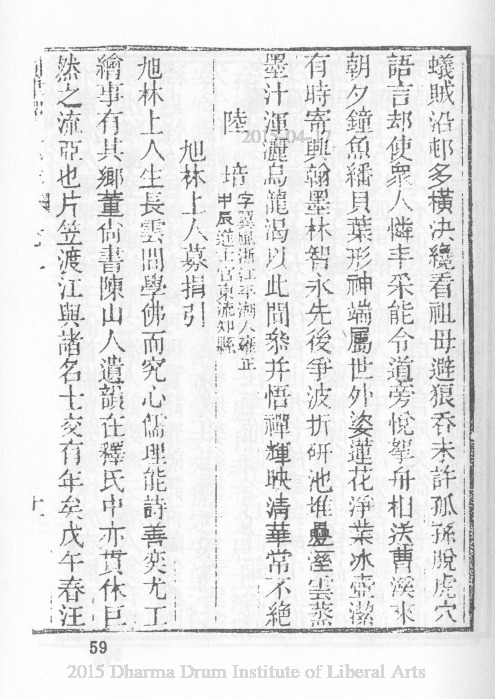 蟻賊沿邨多橫決纔看祖母避狼吞未許孤孫脫虎穴
語言却使衆人憐丰采能令道旁悅拏舟相送曹溪來
朝夕鐘魚繙貝葉形神端屬世外姿蓮花淨業冰壺潔
有時寄興翰墨林智永先後爭波折研池堆疊溼雲蒸
墨汁渾灑烏龍渴以此間參并悟禪輝映清華常不絕
陸培字翼風浙江平湖人雍正
甲辰進士官東流知縣
旭林上人募指引
旭林上人生長雲間學佛而究心儒理能詩善奕尤工
繪事有其鄉董尚書陳山人遺韻在釋氏中亦貫休巨
然之流亞也片笠渡江與諸名士交有年矣戊午春汪
59
2015-04-17
2015 Dharma Drum Institute of Liberal Arts